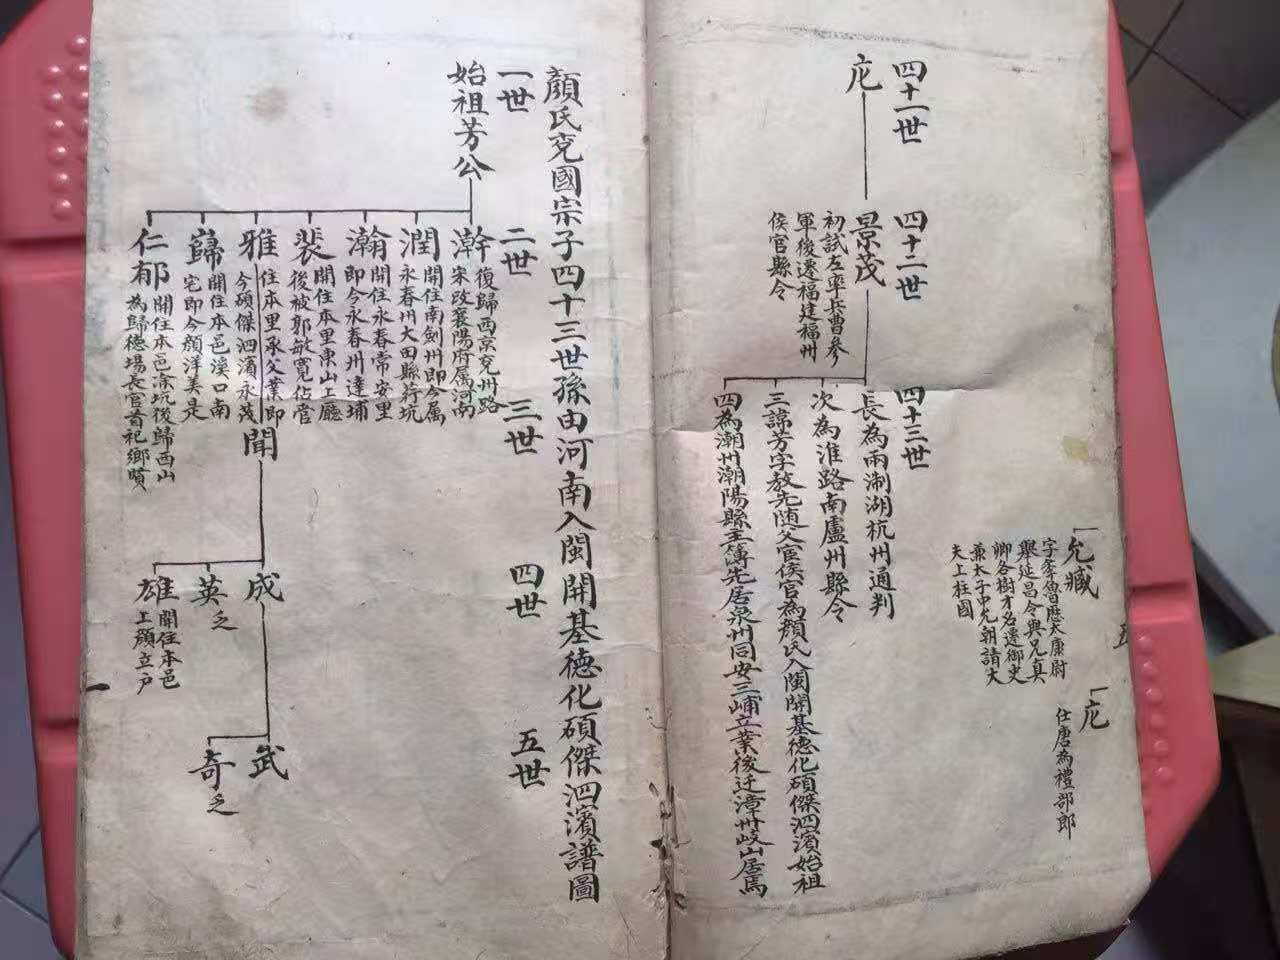 允臧
字筆魯歷太康尉
舉延昌令與兄真
卿各樹才名遷御史
兼太子中允朝請大
夫上柱國
庀
仕唐為禮部郎
五
四十一世
庀
四十二世
景茂
初試左率兵曹參
軍後遷福建福州
侯官縣令
四十三世
長為兩浙湖杭州通判
次為淮路南盧州縣令
三諱芳字敖先随父官侯官為顏氏入閩開基德化碩傑泗濱始祖
四為潮州潮陽縣主簿先居泉州同安三峬立業後迁漳州岐山居焉
顏氏兖國宗子四十三世孫由河南入閩開基德化碩傑泗濱譜圖
一世
始祖芳公
二世
澣
復歸西京兖州路
宋改襄陽府属河南
潤
開住南劍州即今属
永春州大田縣荇坑
瀚
開住永春常安里
即今永春州達埔
裴
開住本里東山上廳
後被郭敏寬佔管
雅
住本里承父業即
今碩傑泗濱永茂
歸
開住本邑溪口南
宅即今顏洋美是
仁郁
開住本邑凃坑後歸西山
為歸德場長官首祀鄉賢
三世
聞
四世
成
英乏
雄
開住本邑
上顏立户
五世
武
奇乏